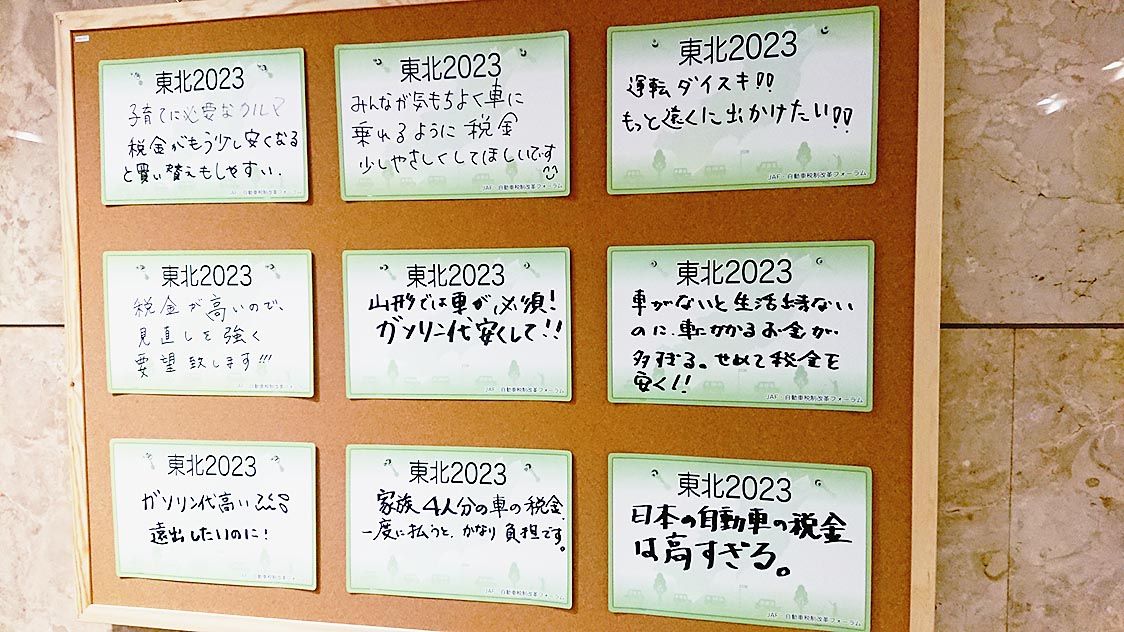 東北2023
子育てに必要なクルマ
税金がもう少し安くなる
と買い替えもしやすい.
JAF・自動車税制改革フォーラム
東北2023
みんなが気もちよく車に
乗れるように税金
少しやさしくしてほしいです
JAF・自動車税制改革フォーラム
東北2023
運転ダイスキ!!
もっと遠くに出かけたい!!
JAF・自動車税制改革フォーラム
東北2023
税金が高いので、
見直しを強く
要望致します!!!
JAF・自動車税制改革フォーラム
東北2023
山形では車が必須!
ガソリン代安くして!!
JAF・自動車税制改革フォーラム
東北2023
車がないと生活出来ない
のに、車にかかるお金が、
多すぎる。せめて税金を
安く!!
JAF・自動車税制改革フォーラム
東北2023
ガソリン代高い
遠出したいのに!
JAF・自動車税制改革フォーラム
東北2023
家族4人分の車の税金
一度に払うと、かなり負担です。
JAF・自動車税制改革フォーラム
東北2023
日本の自動車の税金
は高すぎる。
JAF・自動車税制改革フォーラム